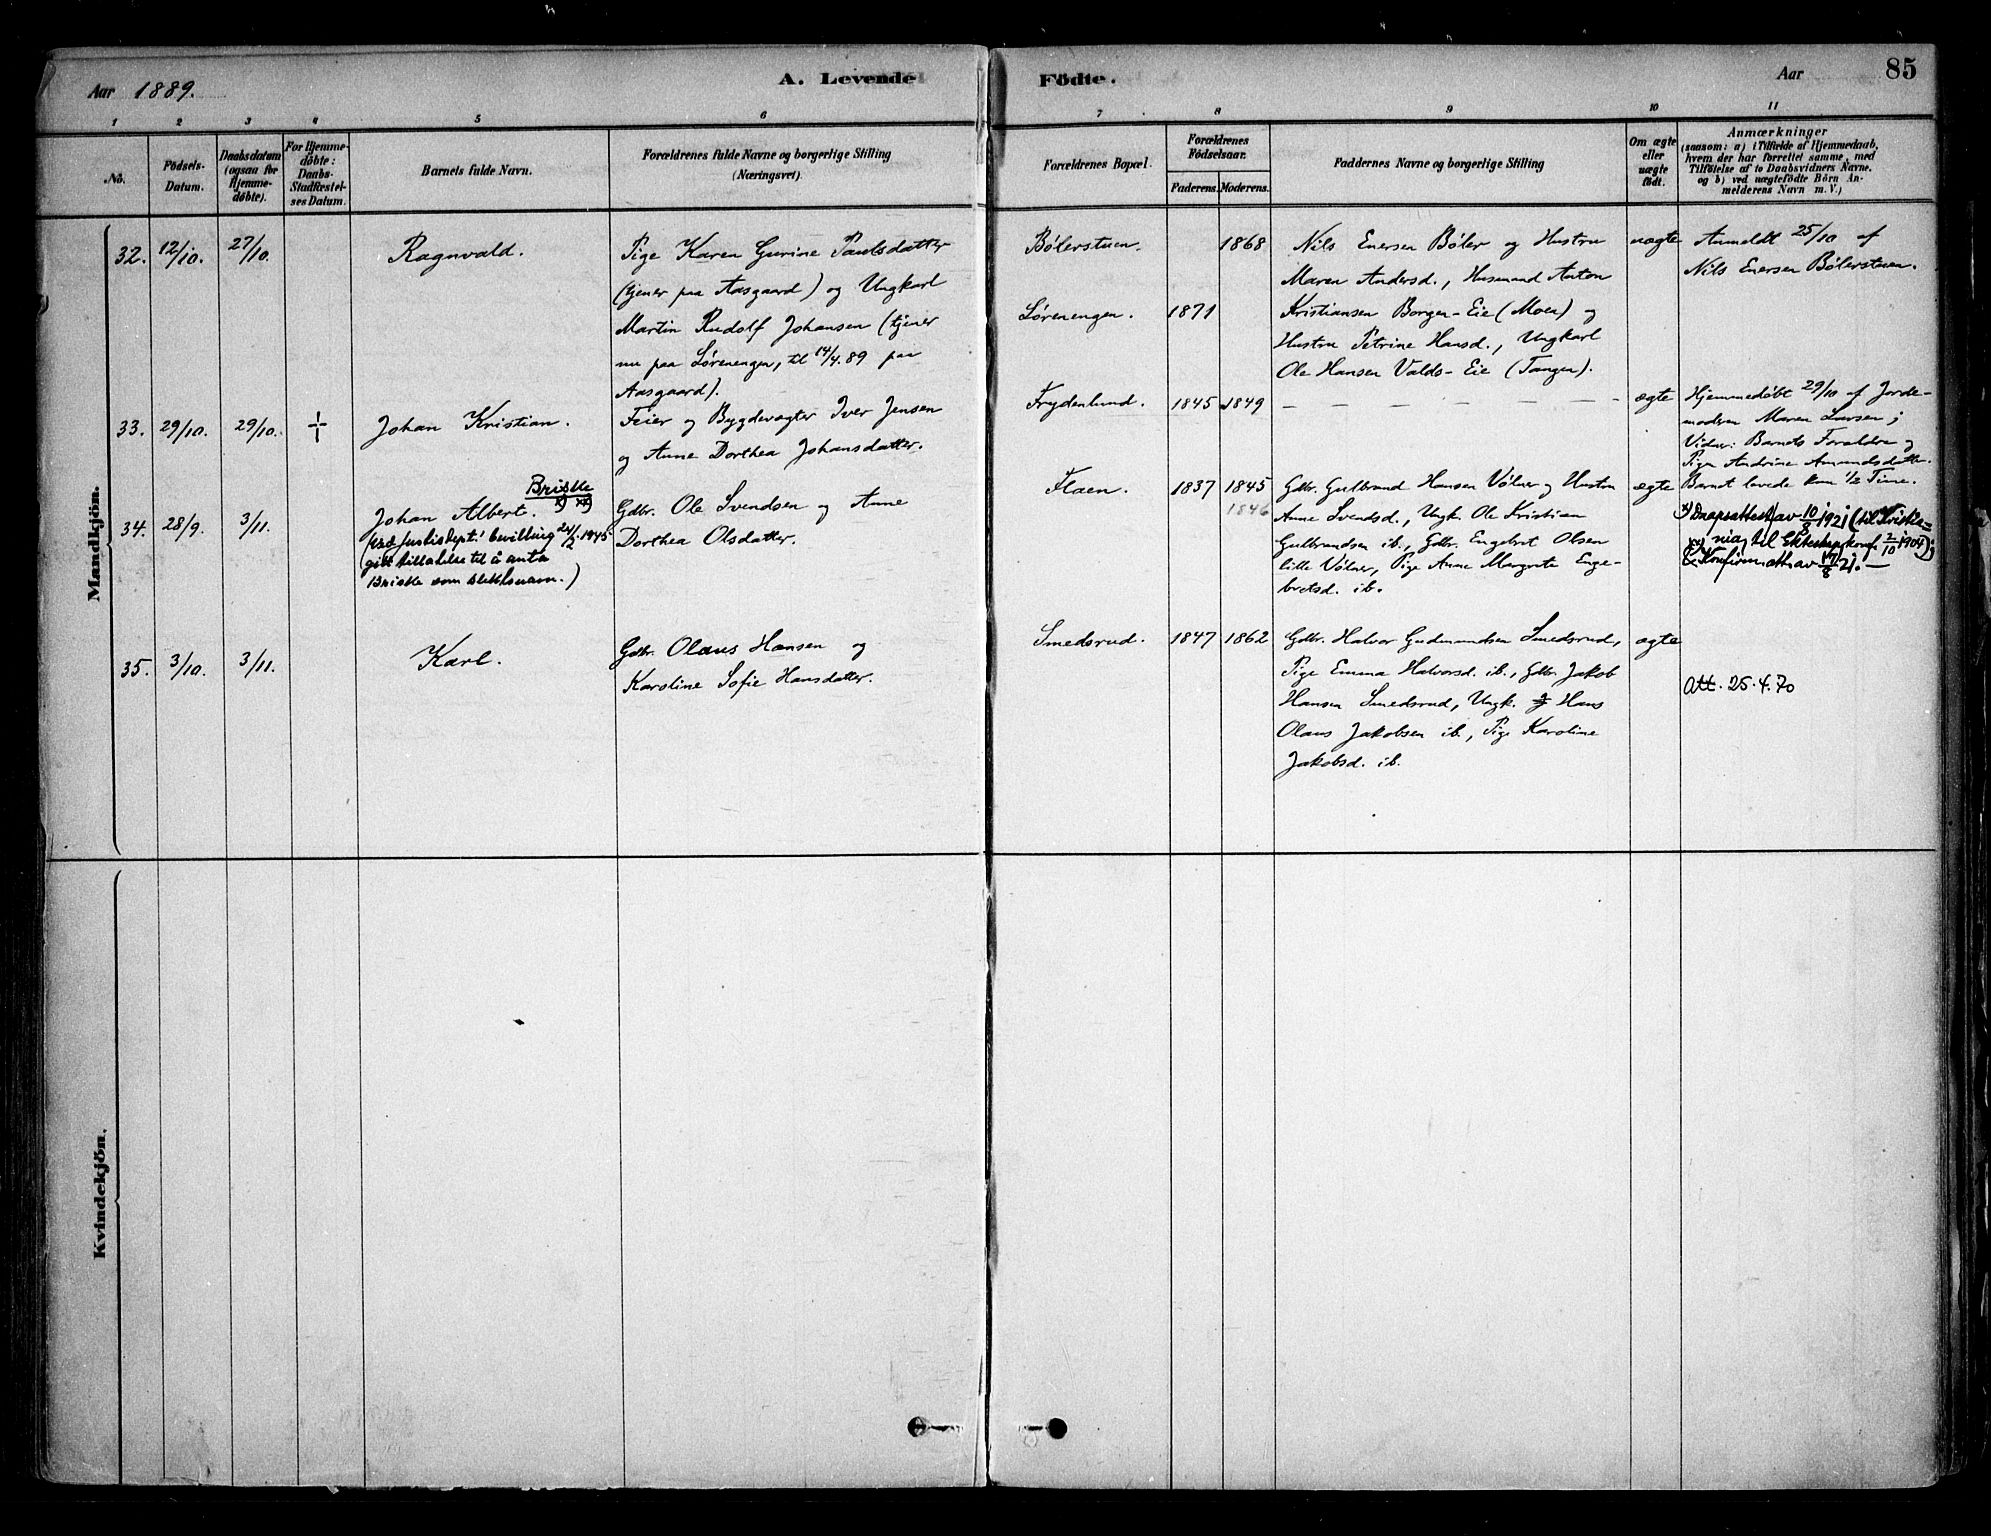 Aar 1889.
A. Levende
Födte.
Aar
85
1
2
3
4
5
6
7
8
9
10
11
No.
Födsels-
Datum.
Daabsdatum
(ogsaa for
Hjemme-
døbte).
For Hjemme-
døbte:
Daabs-
Stadfæstel-
ses Datum.
Barnets fulde Navn.
Forældrenes fulde Navne og borgerlige Stilling
(Næringsvei).
Forældrenes Bopæl.
Forældrenes
Födselsaar.
Faderens.
Moderens.
Faddernes Navne og borgerlige Stilling
Om ægte
eller
uægte
födt.
Anmærkninger
(saasom: a) i Tilfælde af Hjemmedaab,
hvem der har forrettet samme, med
Tilföielse af to Daabsvidners Navne,
og b) ved uægtefödte Börn An-
melderens Navn m. V.)
Mandkjön.
32.
12/10.
27/10.
Ragnvald.
Pige Karen Gurine Paulsdatter
(tjener paa Aasgaard) og Ungkarl
Martin Rudolf Johansen (tjener
nu paa Lørenengen, til 14/4. 89 paa
Aasgaard).
Bølerstuen.
Lørenengen.
1871
1868
Nils Enersen Bøler og Hustru
Maren Andersd., Husmand Anton
Kristiansen Borgen-Eie (Moen) og
Hustru Petrine Hansd., Ungkarl
Ole Hansen Valds-Eie (Tangen).
uægte
Anmeldt 25/10 af
Nils Enersen Bølerstuen.
33.
29/10.
29/10.
Johan Kristian.
Feier og Bygdevægter Iver Jensen
og Anne Dorthea Johansdatter.
Frydenlund.
1845
1849
— — — — — — —
ægte
Hjemmedøbt 29/10 af Jorde-
moderen Maren Larsen;
Vidner: Barnets Forældre og
Pige Andrine Amundsdatter.
Barnet levede kun 1/2 Time.
34.
28/9.
3/11.
Briske
Johan Albert. x) xx)
(ved Justisdept.' bevilling 24/2 1945
gitt tillatelse til å anta
Briske som slektsnavn.)
Gdbr. Ole Svendsen og Anne
Dorthea Olsdatter.
Flaen.
1837
1845
1846
Gdbr. Gulbrand Hansen Vølner og Hustru
Anne Svendsd., Ungk. Ole Kristian
Gulbrandsen ib., Gdbr. Engebret Olsen
lille Vølner, Pige Anne Margrete Enge-
bretsd. ib.
ægte
x) Daapsattest av 10/8 1921 (til Kristia-
nia) til Ekteskap konf. 2/10 1904);
xx) Konfirm.att. av 17/8 21. —
35.
3/10.
3/11.
Karl.
Gdbr. Olaus Hansen og
Karoline Sofie Hansdatter.
Smedsrud.
1847
1862
Gdbr. Halvor Gudmundsen Smedsrud,
Pige Emma Halvorsd. ib., Gdbr. Jakob
Hansen Smedsrud, Ungk. Hans
Olaus Jakobsen ib., Pige Karoline
Jakobsd. ib.
ægte
Att. 25.4.70
Kvindekjön.